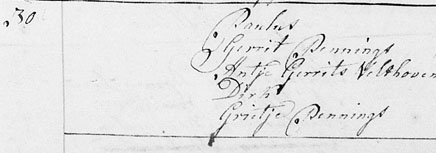 30
Paulus
Gerrit Pennings
Antje Gerrits Velthoven
Dirk
Grietje Pennings